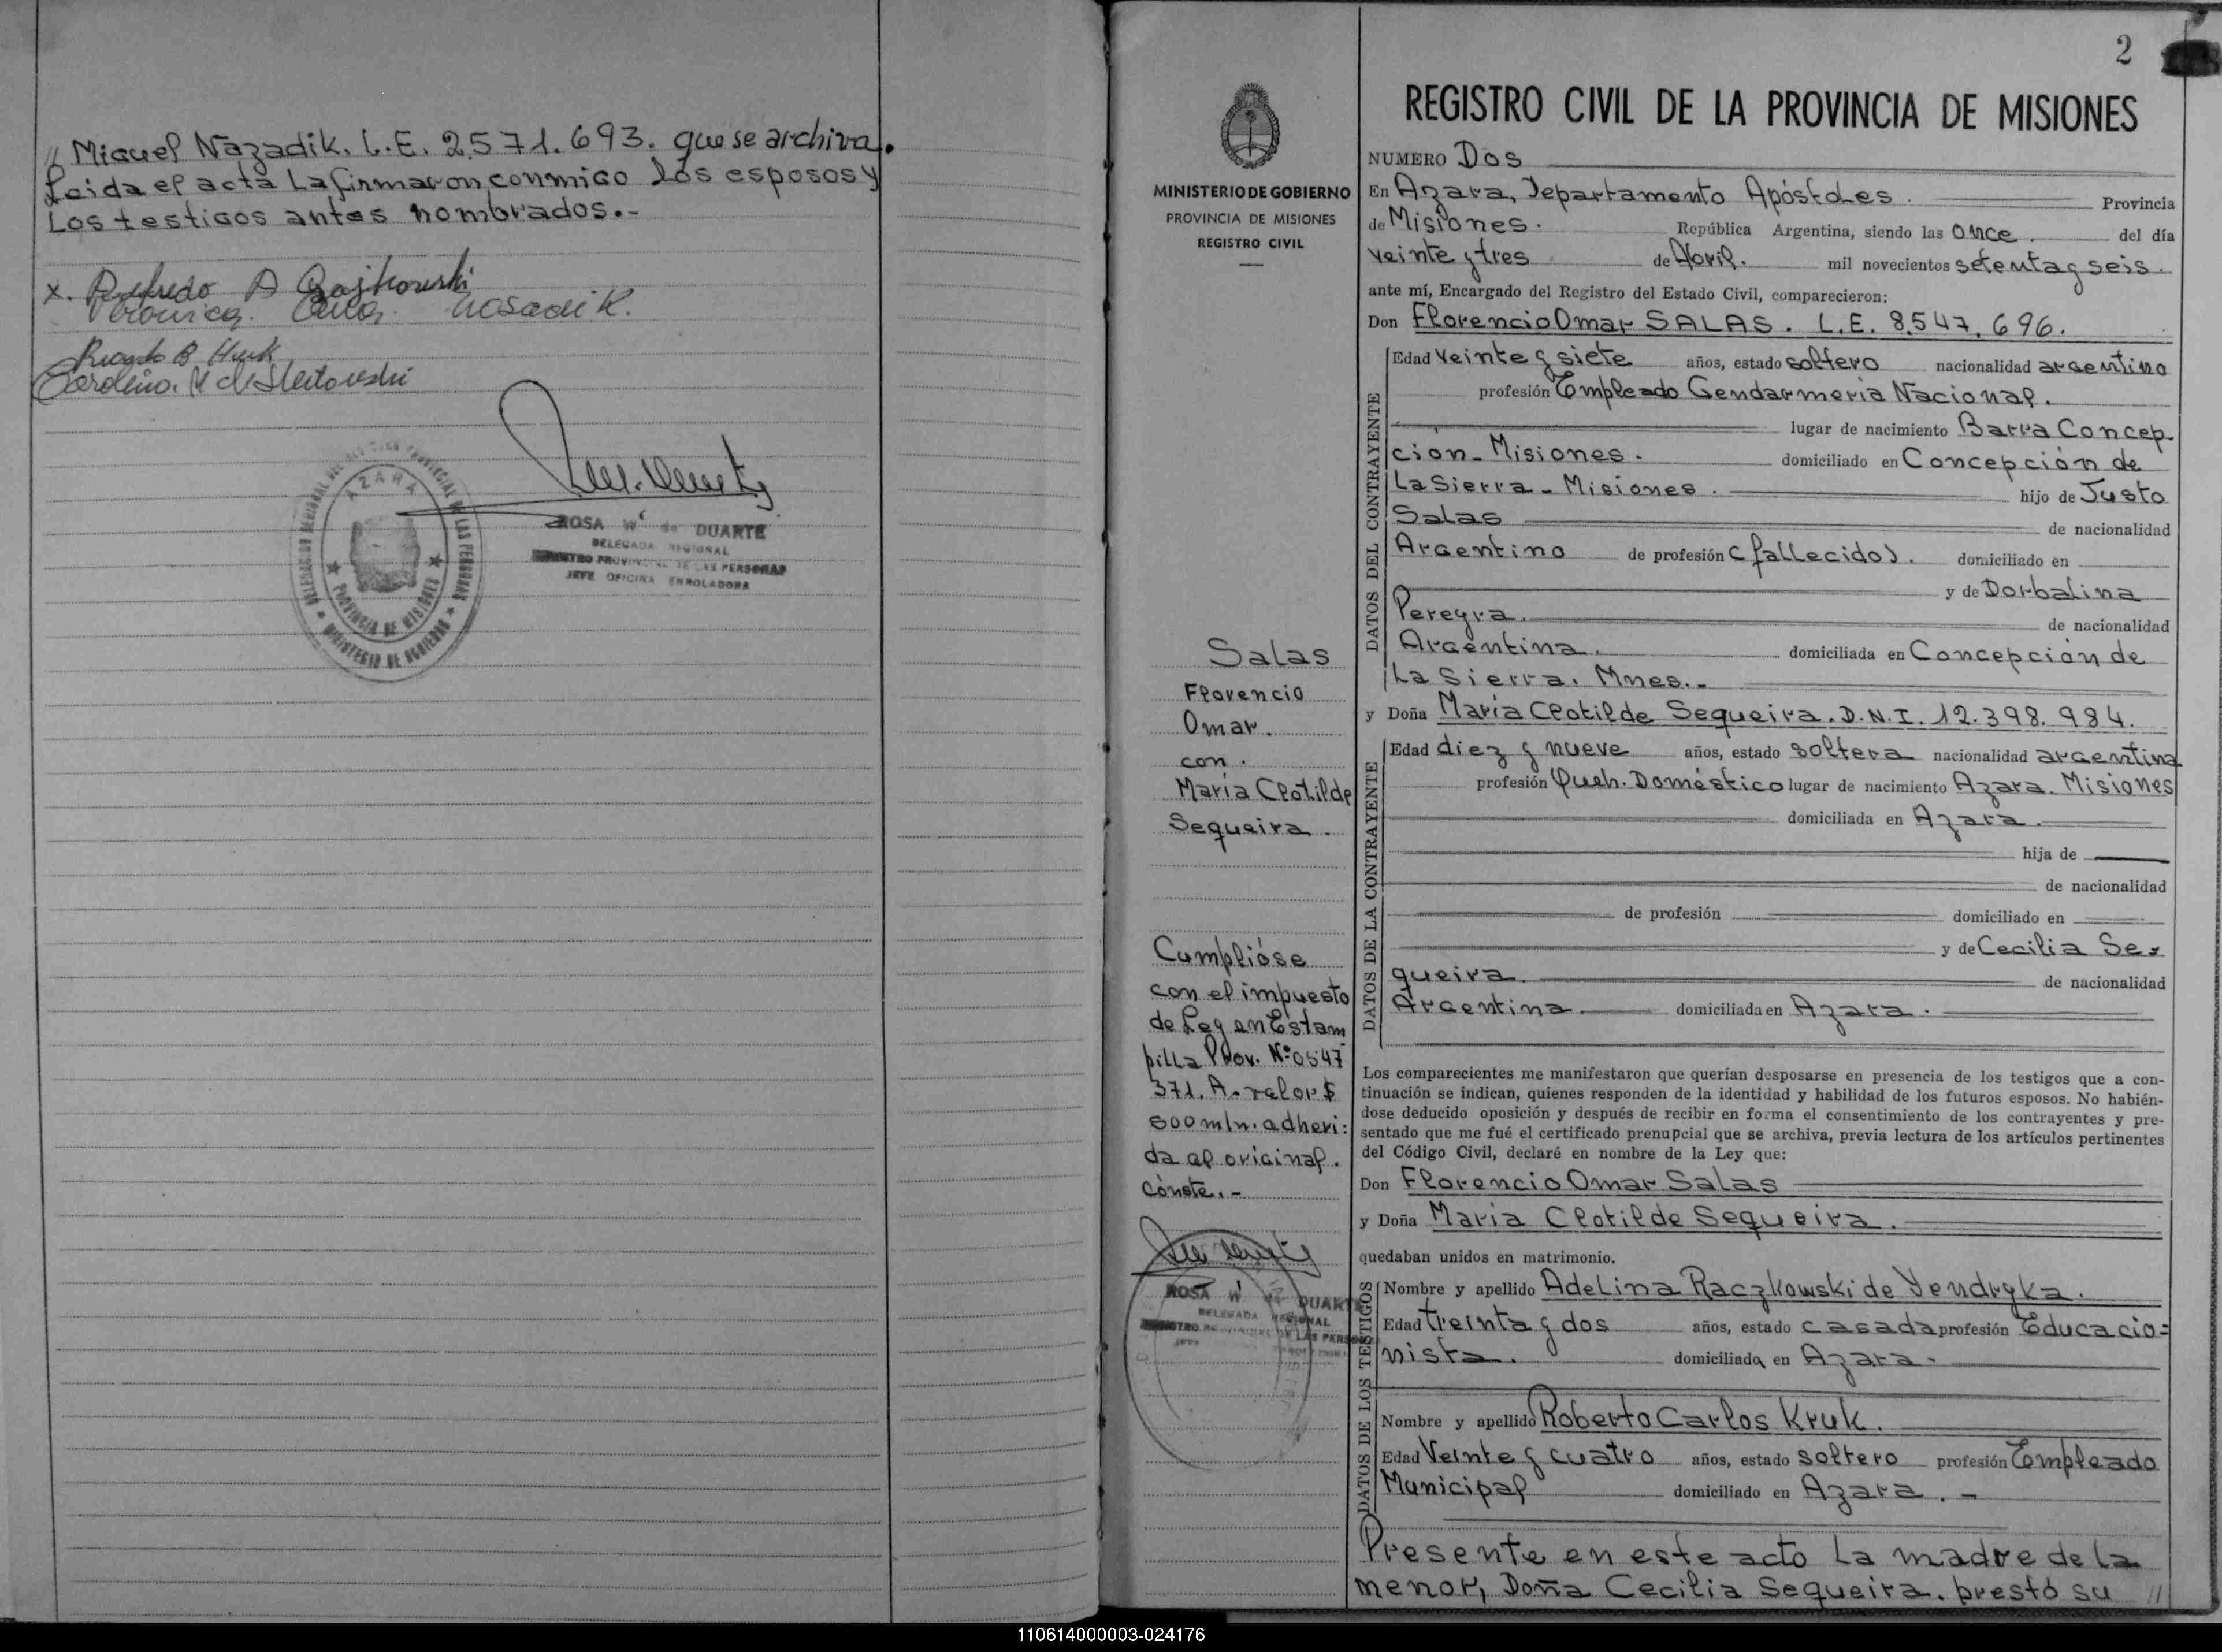 // Miguel Nazadik. L.E. 2.571.693. que se archiva.
Leida el acta La firmaron conmigo los esposos y
Los testigos antes nombrados.-
x. Alfredo A
Veronica. Nasadik.
Ricardo B
Carolina. N de
AZARA
PROVINCIA DE MISIONES
MINISTERIO DE GOBIERNO
ROSA W de DUARTE
DELEGADA REGIONAL
REGISTRO PROVINCIAL DE LAS PERSONAS
JEFE OFICINA ENROLADORA
2
MINISTERIO DE GOBIERNO
PROVINCIA DE MISIONES
REGISTRO CIVIL
Salas
Florencio
Omar.
con.
María Clotilde
Sequeira.
Cumplióse
con el impuesto
de Ley en Estam
pilla Prov. Nº 0547
371. A. valor $
500 m/n. adheri:
da al original.
Conste.-
ROSA W de DUARTE
DELEGADA REGIONAL
REGISTRO PROVINCIAL DE LAS PERSONAS
JEFE
REGISTRO CIVIL DE LA PROVINCIA DE MISIONES
NUMERO Dos
En Azara, Departamento Apóstoles. Provincia
de Misiones. República Argentina, siendo las Once. del día
veinte y tres de Abril. mil novecientos setenta y seis.
ante mí, Encargado del Registro del Estado Civil, comparecieron:
Don Florencio Omar SALAS. L.E. 8.547.696.
DATOS DEL CONTRAYENTE
Edad veinte y siete años, estado soltero nacionalidad argentino
profesión Empleado Gendarmería Nacional.
lugar de nacimiento Barra Concep-
ción- Misiones. domiciliado en Concepción de
La Sierra - Misiones. hijo de Justo
Salas de nacionalidad
Argentino de profesión (fallecido). domiciliado en
y de Dorbalina
Pereyra. de nacionalidad
Argentina. domiciliada en Concepción de
La Sierra. Mnes.-
y Doña María Clotilde Sequeira. D.N.I. 12.398.984.
DATOS DE LA CONTRAYENTE
Edad diez y nueve años, estado soltera nacionalidad argentina
profesión Queh. Doméstico lugar de nacimiento Azara. Misiones
domiciliada en Azara.
hija de
de nacionalidad
de profesión domiciliado en
y de Cecilia Se=
queira. de nacionalidad
Argentina. domiciliada en Azara.
Los comparecientes me manifestaron que querían desposarse en presencia de los testigos que a con-
tinuación se indican, quienes responden de la identidad y habilidad de los futuros esposos. No habién-
dose deducido oposición y después de recibir en forma el consentimiento de los contrayentes y pre-
sentado que me fué el certificado prenupcial que se archiva, previa lectura de los artículos pertinentes
del Código Civil, declaré en nombre de la Ley que:
Don Florencio Omar Salas
y Doña María Clotilde Sequeira.
quedaban unidos en matrimonio.
DATOS DE LOS TESTIGOS
Nombre y apellido Adelina Raczkowski de Yendryka.
Edad treinta y dos años, estado casada profesión Educacio=
nista. domiciliada en Azara.
Nombre y apellido Roberto Carlos Kruk.
Edad Veinte y cuatro años, estado soltero profesión Empleado
Municipal domiciliado en Azara.-
Presente en este acto La madre de la
menor, Doña Cecilia Sequeira. prestó su //
110614000003-024176